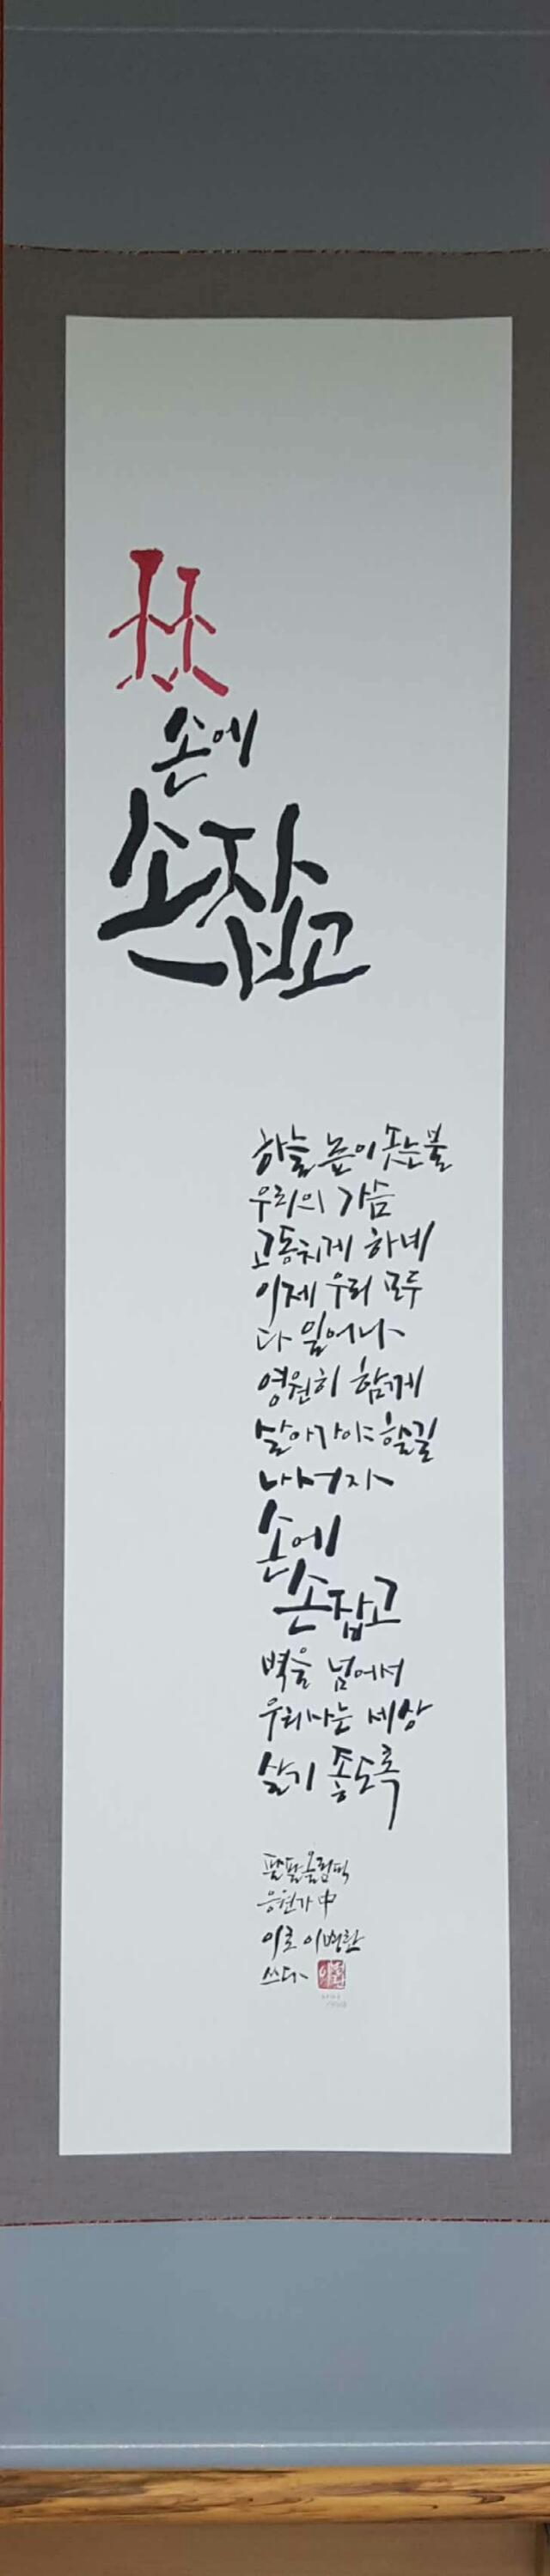 손에
손잡고
하늘 높이 솟는 불
우리의 가슴
고동치게 하네
이제 우리 모두
다 일어나
영원히 함께
살아가야 할 길
나서자
손에
손잡고
벽을 넘어서
우리 사는 세상
살기 좋도록
팔팔올림픽
응원가 中
이로 이병환
쓰다